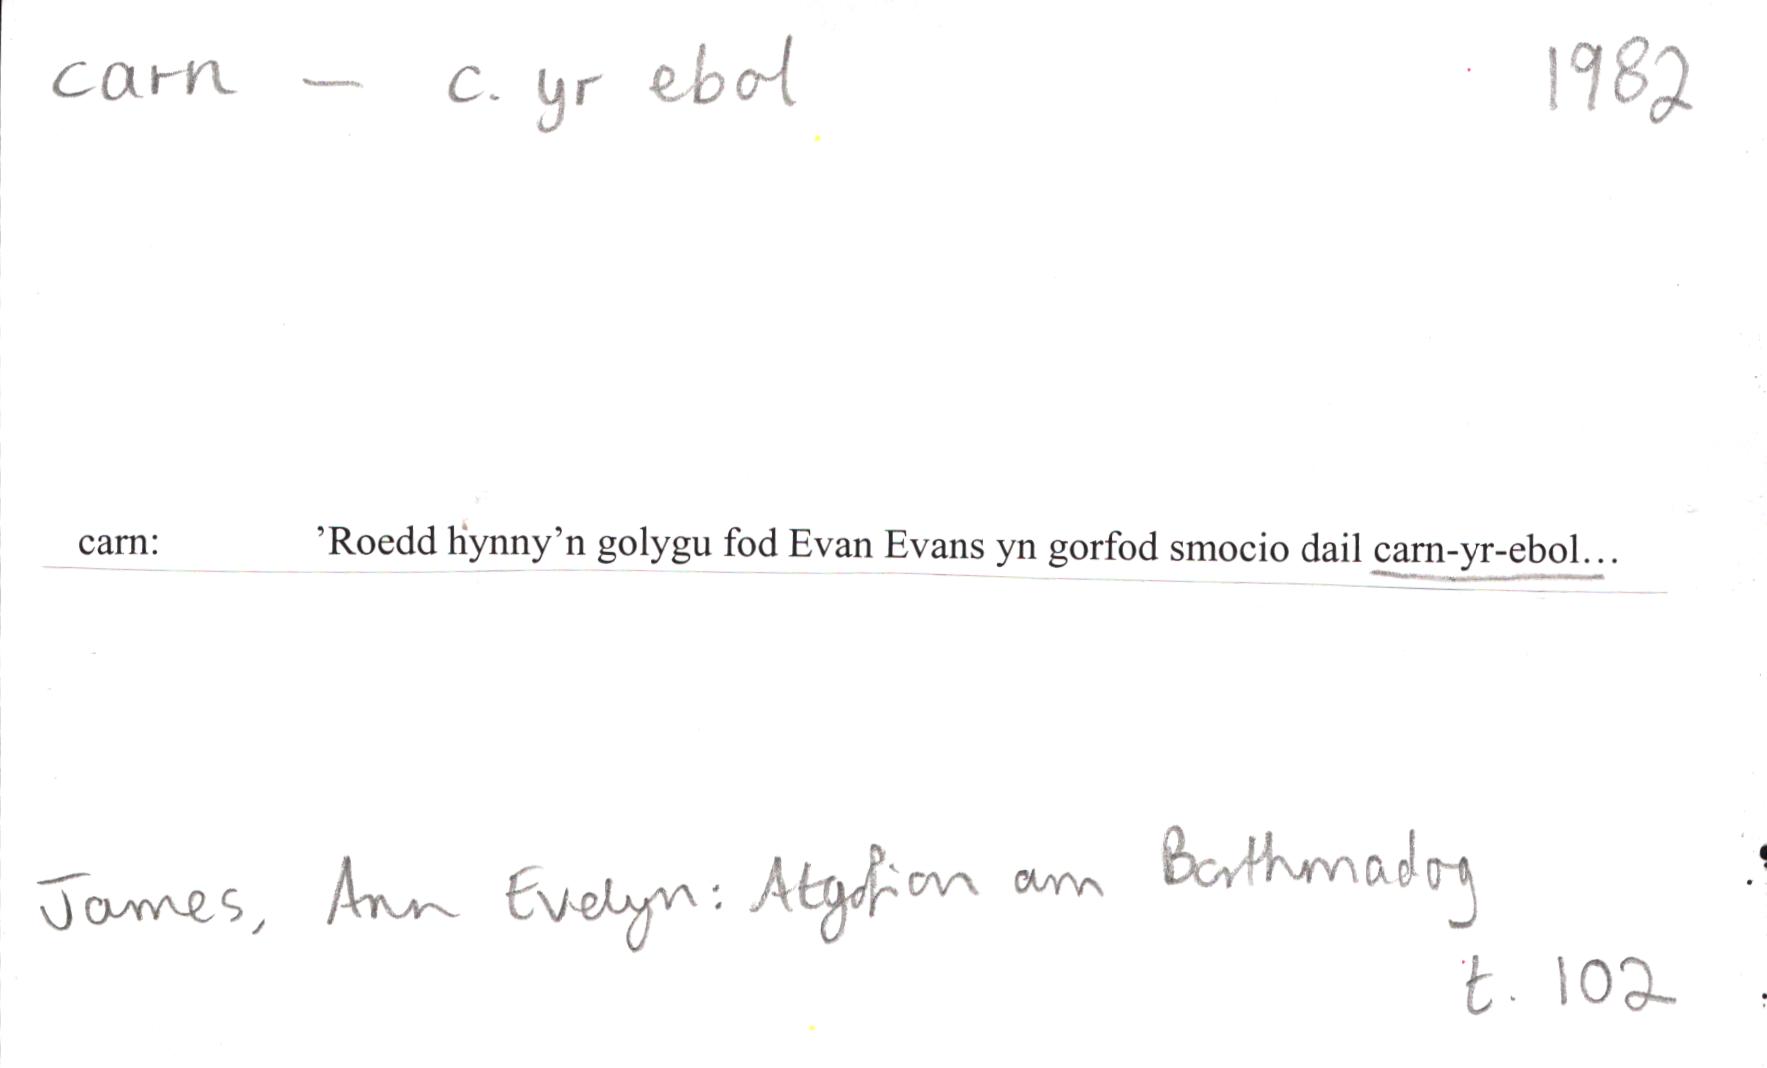 carn — c. yr ebol 1982
carn: ’Roedd hynny’n golygu fod Evan Evans yn gorfod smocio dail carn-yr-ebol…
James, Ann Evelyn: Atgofion am Borthmadog
t. 102